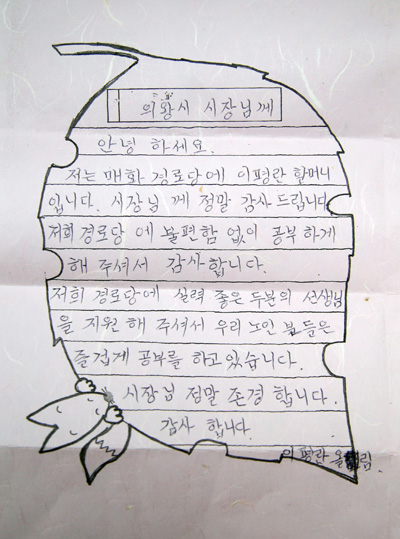 의왕시 시장님께
안녕 하세요.
저는 매화 경로당에 이평란 할머니
입니다. 시장님 께 정말 감사 드립니다
저희 경로당 에 불편함 없이 공부 하게
해 주셔서 감사합니다.
저희 경로당에 실력 좋은 두분의 선생님
을 지원 해 주셔서 우리 노인 분들은
즐겁게 공부를 하고 있습니다.
시장님 정말 존경 합니다.
감사 합니다.
이평란 올림.